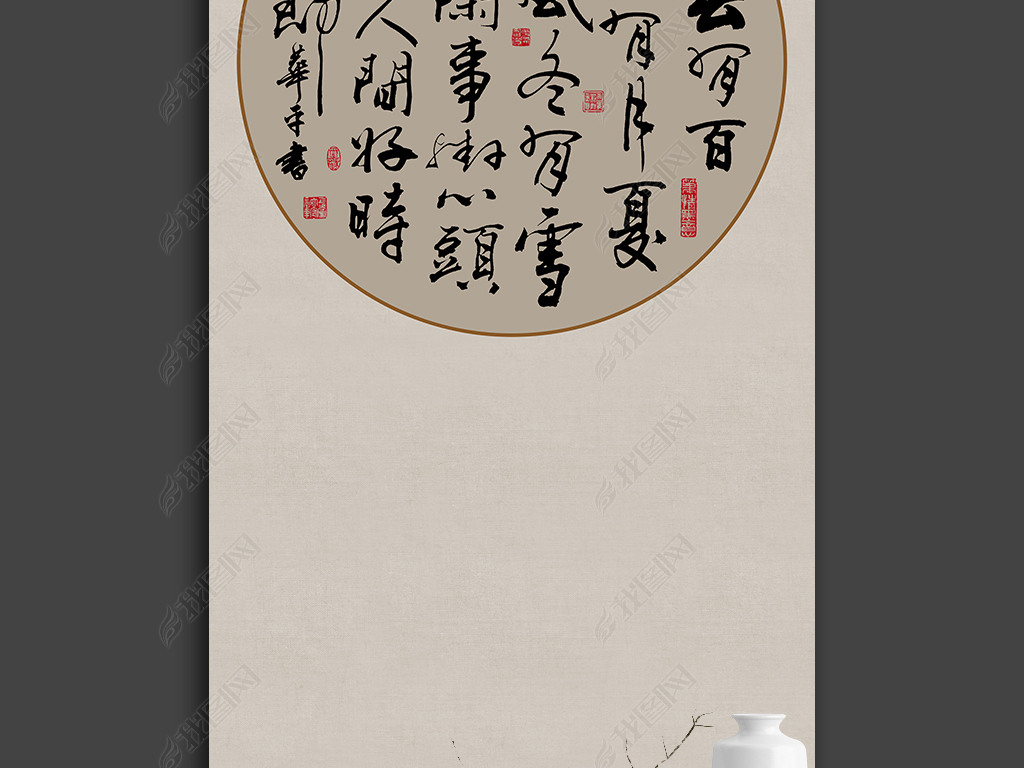 有百
有月夏
風冬有雪
閑事掛心頭
人間好時
華平書
找图网